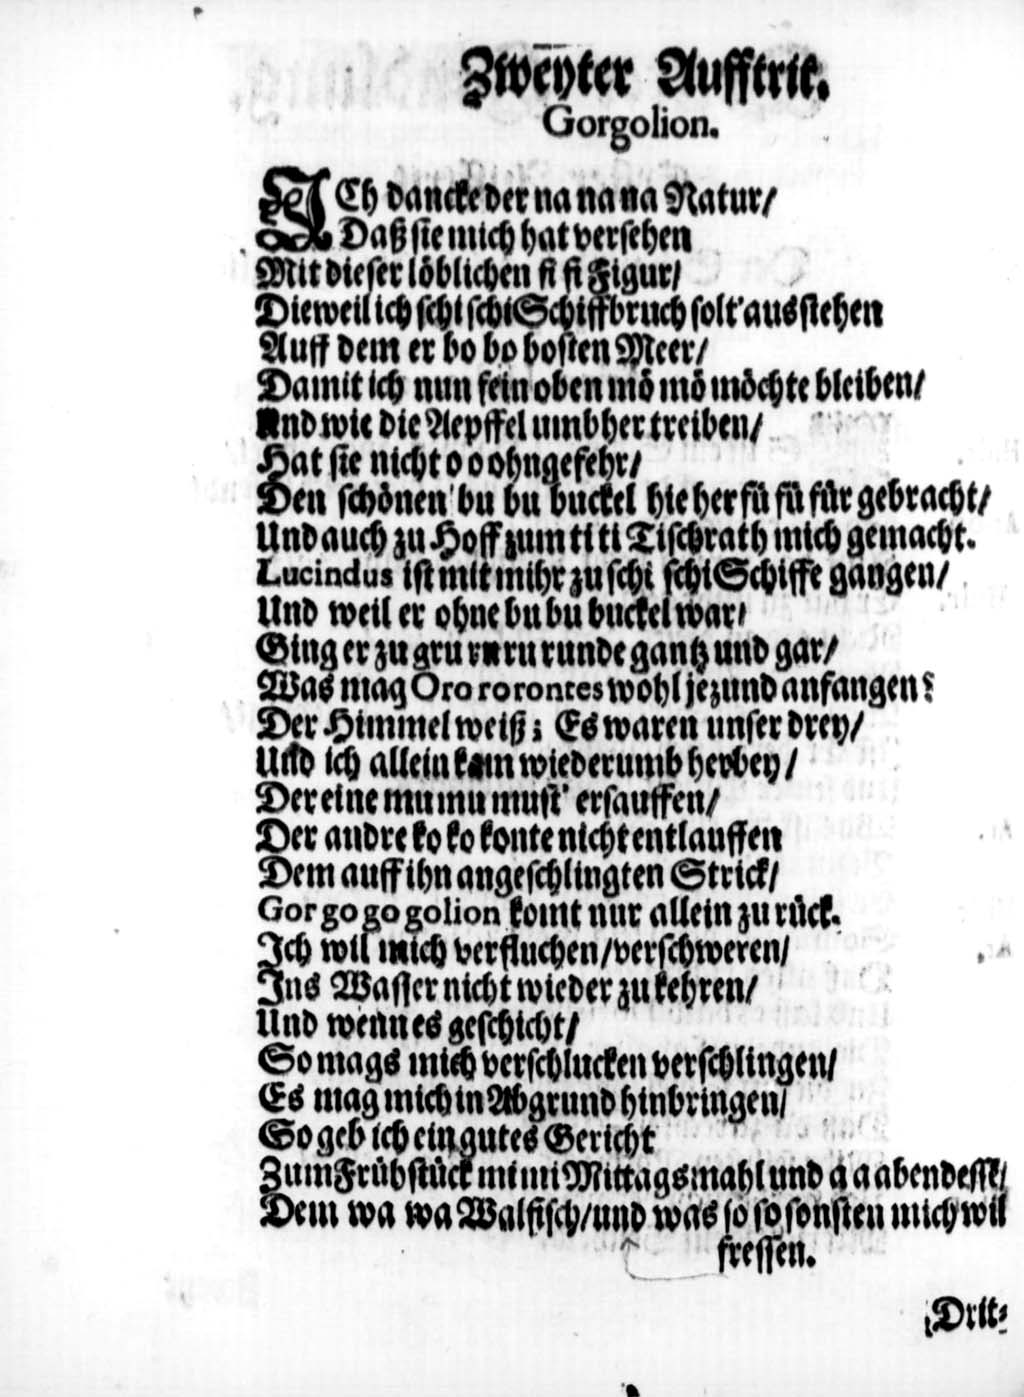 Zweyter Aufftrit.
Gorgolion.
ICh dancke der na na na Natur/
Daß sie mich hat versehen
Mit dieser löblichen fi fi Figur/
Dieweil ich schi schi Schiffbruch solt' ausstehen
Auff dem er bo bo bosten Meer/
Damit ich nun fein oben mö mö möchte bleiben/
Und wie die Aepffel umbher treiben/
Hat sie nicht o o ohngefehr/
Den schönen bu bu buckel hie her fü fü für gebracht/
Und auch zu Hoff zum ti ti Tischrath mich gemacht.
Lucindus ist mit mihr zu schi schi Schiffe gangen/
Und weil er ohne bu bu buckel war/
Ging er zu gru ru ru runde gantz und gar/
Was mag Oro ro rontes wohl jezund anfangen?
Der Himmel weiß; Es waren unser drey/
Und ich allein kam wiederumb herbey/
Der eine mu mu must' ersauffen/
Der andre ko ko konte nicht entlauffen
Dem auff ihn angeschlingten Strick/
Gor go go golion komt nur allein zu rück.
Ich wil mich verfluchen/verschweren/
Ins Wasser nicht wieder zu kehren/
Und wenn es geschicht/
So mags mich verschlucken verschlingen/
Es mag mich in Abgrund hinbringen/
So geb ich ein gutes Gericht
Zum Frühstück mi mi Mittagsmahl und a a abendesse/
Dem wa wa Walfisch/und was so so sonsten mich wil
fressen.
Drit-